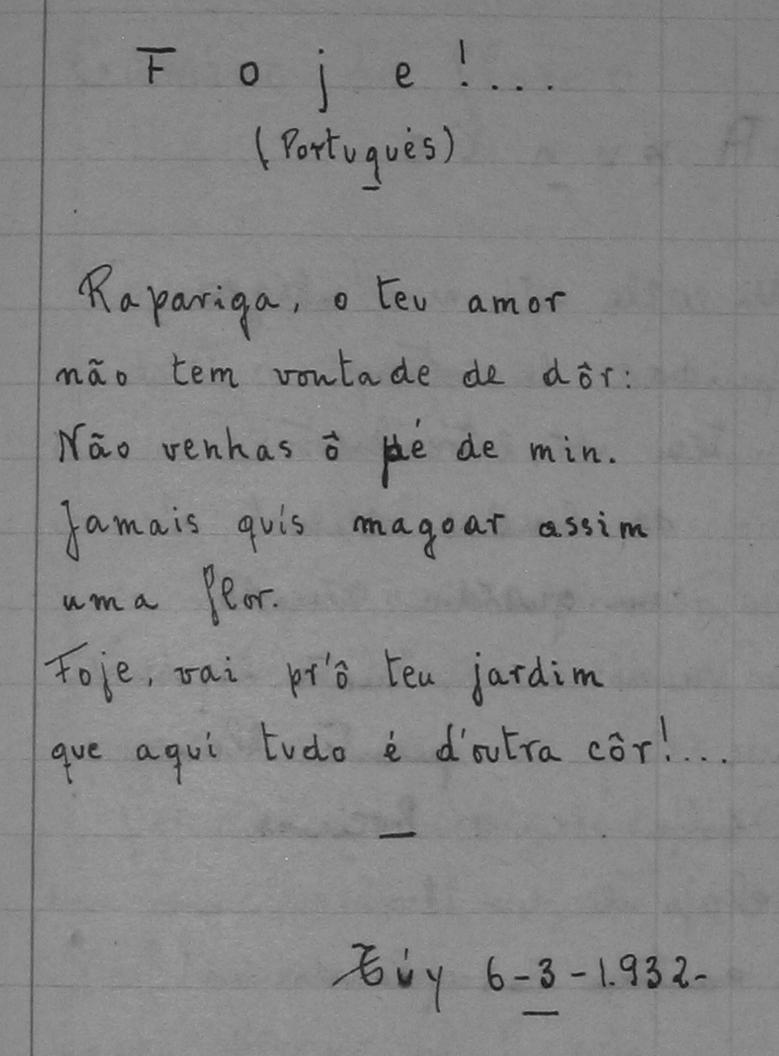 Foje!...
(Português)
Rapariga, o teu amor
não tem vontade de dôr:
Não venhas ô pé de min.
Jamais quís magoar assim
uma flor.
Foje, vai pr'ô teu jardim
que aquí tudo é d'outra côr!...
Túy 6-3-1.932-